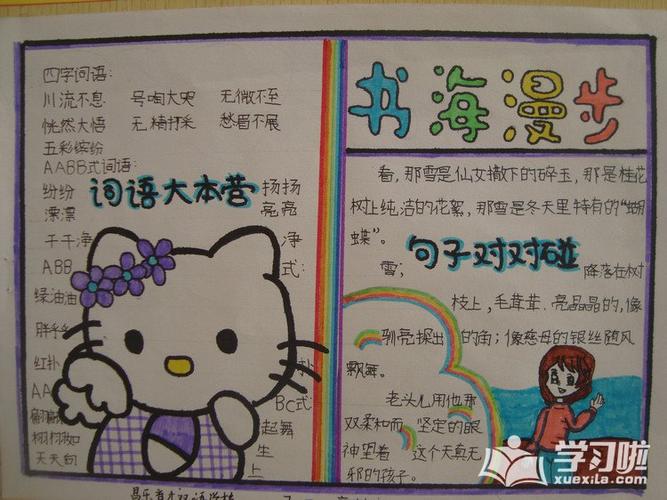 四字词语:
川流不息 号啕大哭 无微不至
恍然大悟 无精打采 愁眉不展
五彩缤纷
AABB式词语:
词语大本营
纷纷 扬扬
漂漂 亮亮
干干净 净
ABB 式:
绿油油
胖乎乎
红扑 扑
AA BC式
翩翩 起舞
栩栩如 生
天天向 上
书海漫步
看,那雪是仙女撒下的碎玉,那是桂花
树上纯洁的花絮,那雪是冬天里特有的“蝴
蝶”。
句子对对碰
雪; 降落在树
枝上,毛茸茸.亮晶晶的,像
驯亮探出 的角;像慈母的银丝随风
飘舞。
老头儿用他那
双柔和而 坚定的眼
神望着 这个天真无
邪的孩子。
学习啦
xuexila.com